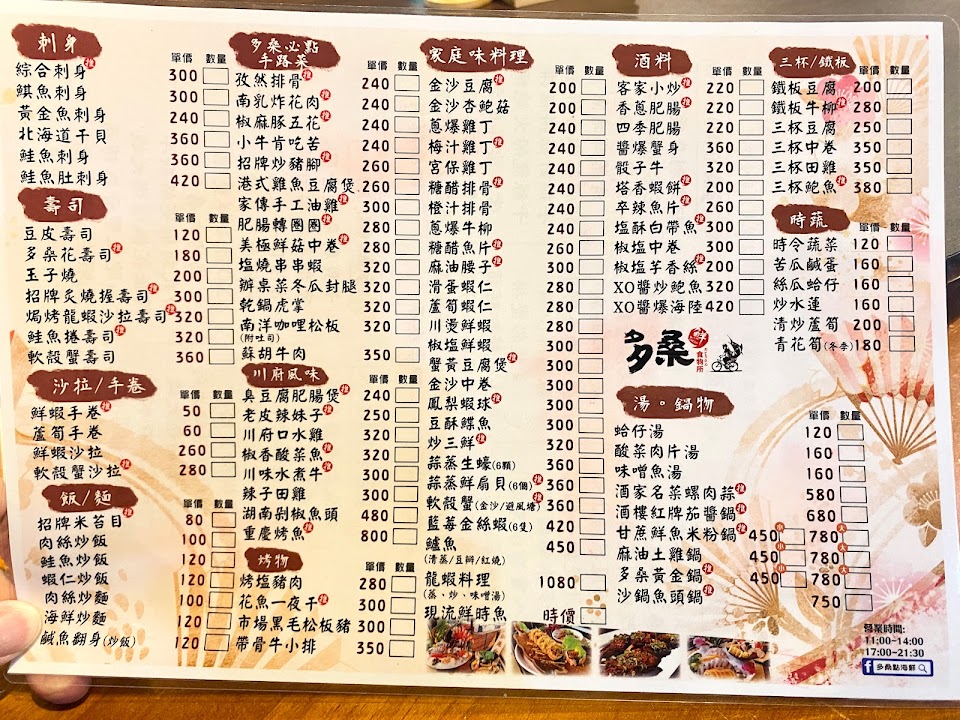 刺身 單價 數量
綜合刺身 推 300
鯕魚刺身 300
黃金魚刺身 240
北海道干貝 360
鮭魚刺身 360
鮭魚肚刺身 420
壽司 單價 數量
豆皮壽司 120
多桑花壽司 推 180
玉子燒 200
招牌炙燒握壽司 推 300
焗烤龍蝦沙拉壽司 推 320
鮭魚捲壽司 推 320
軟殼蟹壽司 360
沙拉/手卷 單價 數量
鮮蝦手卷 推 50
蘆筍手卷 60
鮮蝦沙拉 260
軟殼蟹沙拉 推 280
飯/麵 單價 數量
招牌米苔目 推 80
肉絲炒飯 100
鮭魚炒飯 120
蝦仁炒飯 120
肉絲炒麵 100
海鮮炒麵 120
鹹魚翻身(炒飯) 120
多桑必點
手路菜 單價 數量
孜然排骨 推 240
南乳炸花肉 推 240
椒麻豚五花 推 240
小牛肯吃苦 240
招牌炒豬腳 推 240
港式雞魚豆腐煲 260
家傳手工油雞 推 300
肥腸轉圈圈 推 280
美極鮮菇中卷 推 280
塩燒串串蝦 320
辦桌菜冬瓜封腿 320
乾鍋虎掌 320
南洋咖哩松板 320
(附吐司)
蘇胡牛肉 350
川府風味 單價 數量
臭豆腐肥腸煲 推 240
老皮辣妹子 推 250
川府口水雞 320
椒香酸菜魚 推 320
川味水煮牛 推 300
辣子田雞 300
湖南剁椒魚頭 480
重慶烤魚 推 800
烤物 單價 數量
烤塩豬肉 280
花魚一夜干 推 300
市場黑毛松板豬 300
帶骨牛小排 350
家庭味料理 單價 數量
金沙豆腐 推 200
金沙杏鮑菇 200
蔥爆雞丁 240
梅汁雞丁 推 240
宮保雞丁 240
糖醋排骨 推 240
橙汁排骨 240
蔥爆牛柳 240
糖醋魚片 推 280
麻油腰子 推 280
滑蛋蝦仁 280
蘆筍蝦仁 280
川燙鮮蝦 280
椒塩鮮蝦 280
蟹黃豆腐煲 推 300
金沙中卷 300
鳳梨蝦球 推 300
豆酥鰈魚 300
炒三鮮 推 300
蒜蒸生蠔(6顆) 360
蒜蒸鮮扇貝(6個) 推 360
軟殼蟹(金沙/避風塘) 推 360
藍莓金絲蝦(6隻) 420
鱸魚 450
(清蒸/豆瓣/紅燒)
龍蝦料理 1080
(蒸、炒、味噌湯)
現流鮮時魚 時價
酒料 單價 數量
客家小炒 推 220
香蔥肥腸 推 220
四季肥腸 220
醬爆蟹身 360
骰子牛 300
塔香蝦餅 推 200
卒辣魚片 推 260
塩酥白帶魚 推 300
椒塩中卷 300
椒塩芋香絲 推 200
XO醬炒鮑魚 320
XO醬爆海陸 420
多桑 鮮 食物所
湯。鍋物 單價 數量
蛤仔湯 120
酸菜肉片湯 160
味噌魚湯 160
酒家名菜螺肉蒜 推 580
酒樓紅牌茄醬鍋 推 680
甘蔗鮮魚米粉鍋 推 450 小 780 大
麻油土雞鍋 450 小 780 大
多桑黃金鍋 推 450 小 780 大
沙鍋魚頭鍋 推 750
三杯/鐵板 單價 數量
鐵板豆腐 200
鐵板牛柳 推 280
三杯豆腐 250
三杯中卷 350
三杯田雞 350
三杯鮑魚 推 380
時蔬 單價 數量
時令蔬菜 120
苦瓜鹹蛋 160
絲瓜蛤仔 160
炒水蓮 160
清炒蘆筍 200
青花筍(冬季) 180
營業時間:
11:00~14:00
17:00~21:30
f 多桑點海鮮